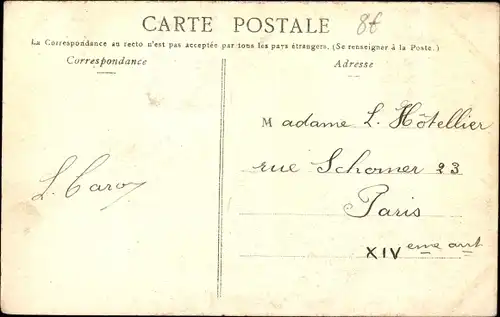 CARTE POSTALE
8€
La Correspondance au recto n'est pas acceptée par tous les pays étrangers. (Se renseigner à la Poste.)
Correspondance
Adresse
Madame L. Hôtellier
rue Schomer 23
Paris
XIVeme arrt
L. Caroy